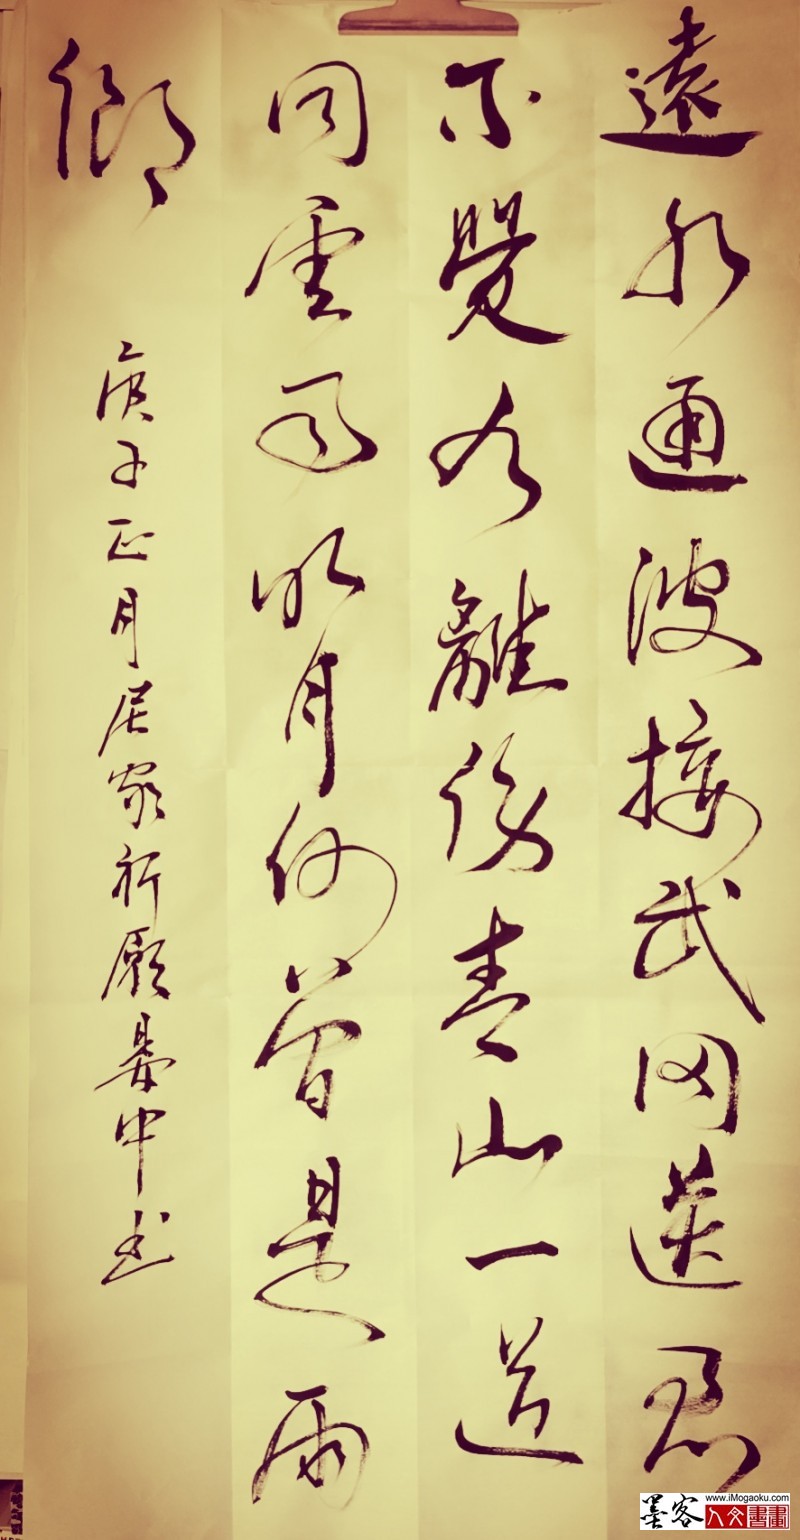 遠水通波接武冈送君
不覺有離傷青山一道
同雲雨明月何曾是兩
鄉
庚子正月居家祈願中书
www.iMogaoku.com
墨客人文書畫